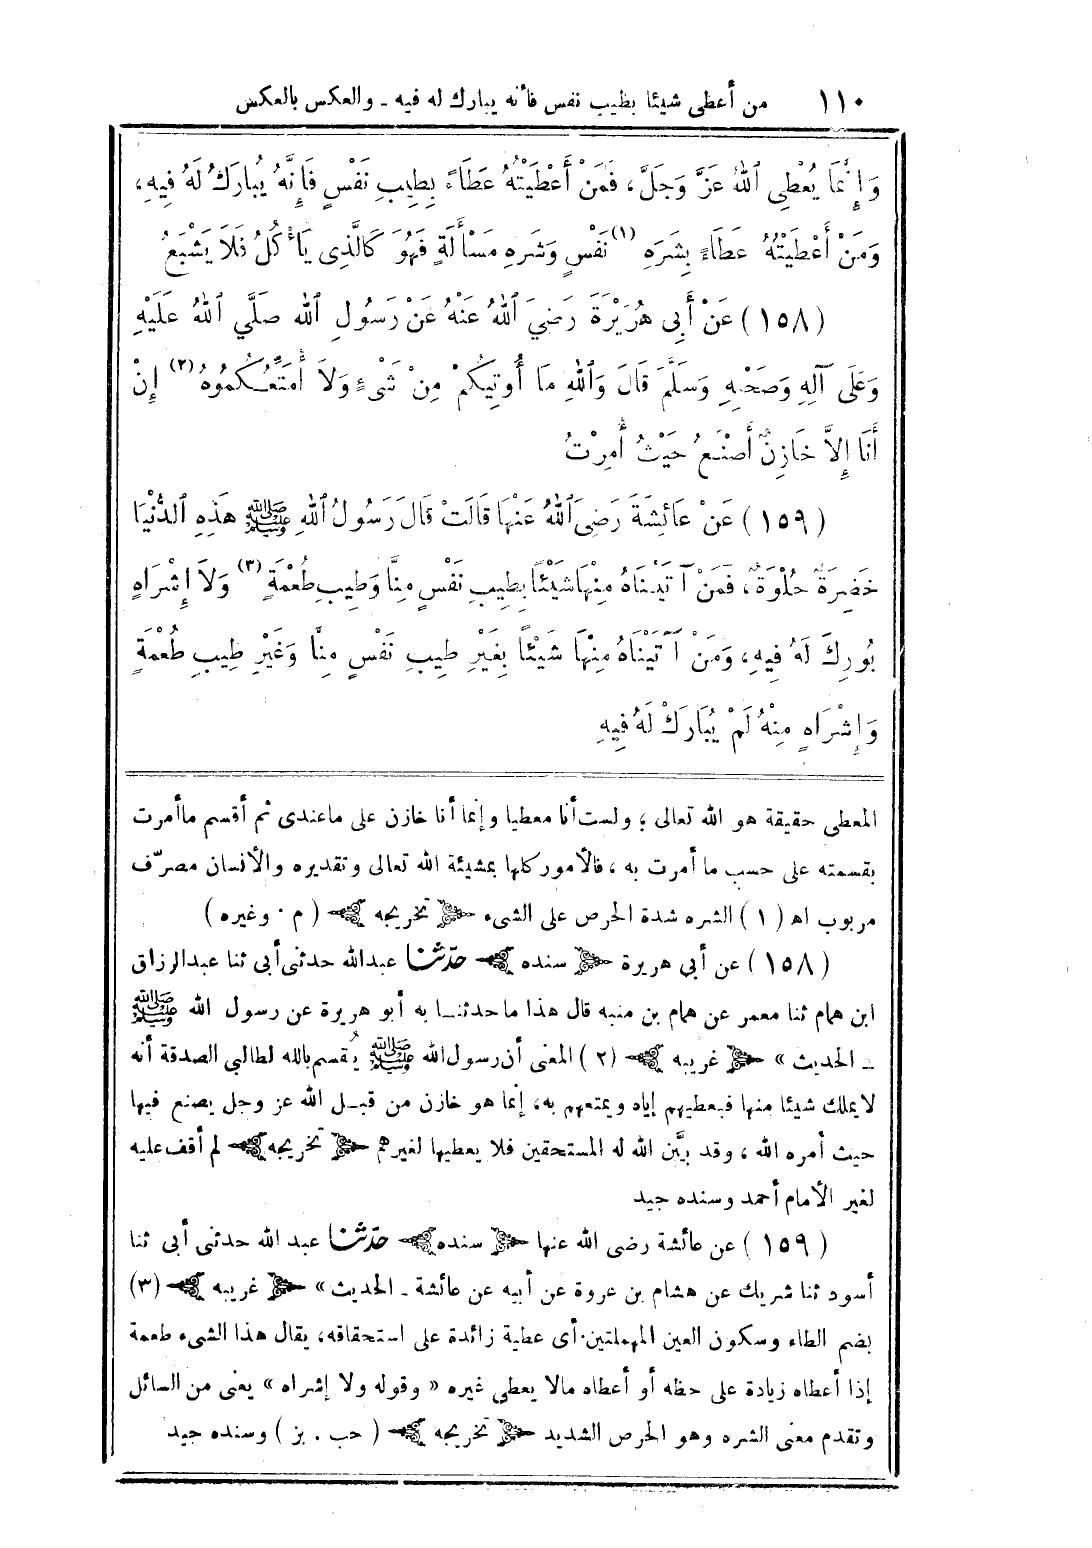 ١١٠ من أعطى شيئا بطيب نفس فأنه يبارك له فيه - والعكس بالعكس
وَإِنَّمَا يُعْطِى اللهُ عَزَّ وَجَلَّ، فَمَنْ أَعْطَيْتُهُ عَطَاءً بِطِيبِ نَفْسٍ فَإِنَّهُ يُبَارَكُ لَهُ فِيهِ،
وَمَنْ أَعْطَيْتُهُ عَطَاءً بِشَرَهِ (١) نَفْسٍ وَشَرَهِ مَسْأَلَةٍ فَهُوَ كَالَّذِى يَأْكُلُ فَلَا يَشْبَعُ
(١٥٨) عَنْ أَبِى هُرَيْرَةَ رَضِيَ اللهُ عَنْهُ عَنْ رَسُولِ اللهِ صَلَّي اللهُ عَلَيْهِ
وَعَلَى آلِهِ وَصَحْبِهِ وَسَلَّمَ قَالَ وَاللهِ مَا أُوتِيكُمْ مِنْ شَىْءٍ وَلَا أُمَتِّعُكُمُوهُ (٢) إِنْ
أَنَا إِلاَّ خَازِنٌ أَصْنَعُ حَيْثُ أُمِرْتُ
(١٥٩) عَنْ عَائِشَةَ رَضِىَ اللهُ عَنْهَا قَالَتْ قَالَ رَسُولُ اللهِ ﷺ هَذِهِ الدُّنْيَا
خَضِرَةٌ حُلْوَةٌ، فَمَنْ آتَيْنَاهُ مِنْهَا شَيْئًا بِطِيبِ نَفْسٍ مِنَّا وَطِيبِ طُعْمَةٍ (٣) وَلَا إِشْرَاهٍ
بُورِكَ لَهُ فِيهِ، وَمَنْ آتَيْنَاهُ مِنْهَا شَيْئًا بِغَيْرِ طِيبِ نَفْسٍ مِنَّا وَغَيْرِ طِيبِ طُعْمَةٍ
وَإِشْرَاهٍ مِنْهُ لَمْ يُبَارَكْ لَهُ فِيهِ
المعطى حقيقة هو الله تعالى ؛ ولست أنا معطيا وإنما أنا خازن على ماعندى ثم أقسم ماأمرت
بقسمته على حسب ما أمرت به ، فالأمور كلها بمشيئة الله تعالى وتقديره والأنسان مصرّف
مربوب اه (١) الشره شدة الحرص على الشىء ﴿ تخريجه ﴾ (م . وغيره)
(١٥٨) عن أبي هريرة ﴿ سنده ﴾ حدّثنا عبدالله حدثنى أبى ثنا عبدالرزاق
ابن همام ثنا معمر عن همام بن منبه قال هذا ما حدثنا به أبو هريرة عن رسول الله ﷺ
ـ الحديث » ﴿ غريبه ﴾ (٢) المعنى أن رسول الله ﷺ يُقسم بالله لطالبي الصدقة أنه
لا يملك شيئا منها فيعطيهم إياه ويمتعهم به، إنما هو خازن من قبل الله عز وجل يصنع فيها
حيث أمره الله ، وقد بيَّن الله له المستحقين فلا يعطيها لغيرهم ﴿ تخريجه ﴾ لم أقف عليه
لغير الأمام أحمد وسنده جيد
(١٥٩) عن عائشة رضى الله عنها ﴿ سنده ﴾ حدّثنا عبد الله حدثنى أبى ثنا
أسود ثنا شريك عن هشام بن عروة عن أبيه عن عائشة ـ الحديث » ﴿ غريبه ﴾ (٣)
بضم الطاء وسكون العين المهملتين . أى عطية زائدة على استحقاقه، يقال هذا الشىء طعمة
إذا أعطاه زيادة على حظه أو أعطاه مالا يعطي غيره « وقوله ولا إشراه » يعنى من السائل
وتقدم معنى الشره وهو الحرص الشديد ﴿ تخريجه ﴾ (حب . بز) وسنده جيد